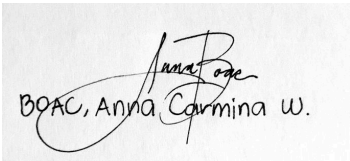 Anna Boac
BOAC, Anna Carmina W.